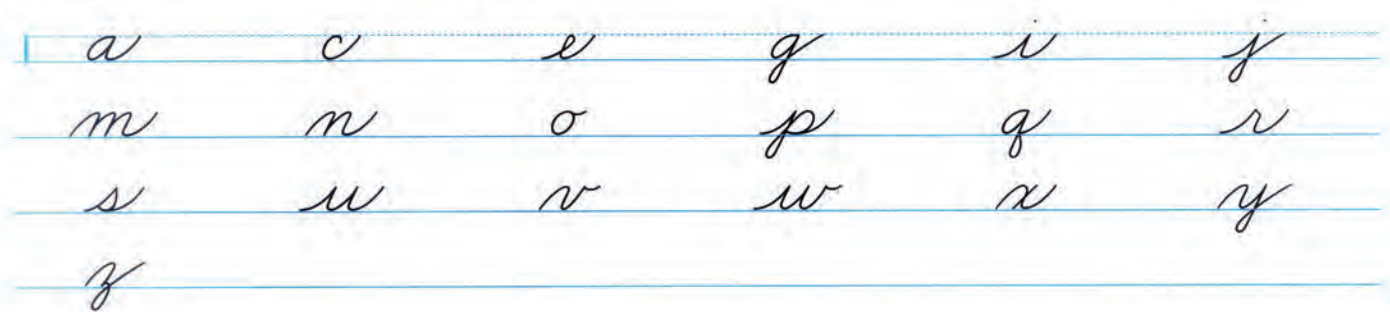 a c e g i j
m n o p q r
s u v w x y
z